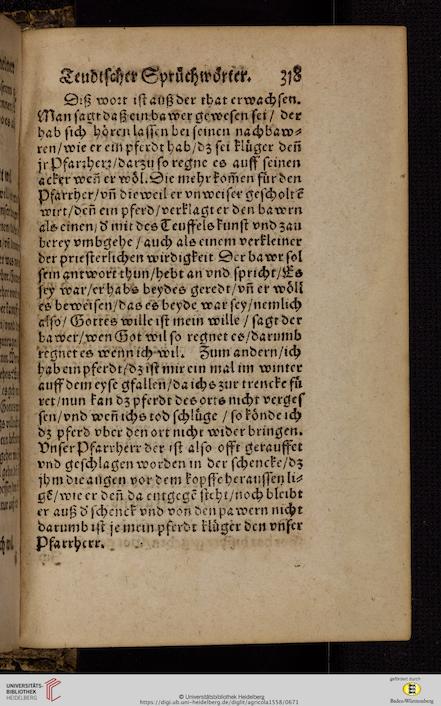 Teudtscher Sprüchwörter. 318
Diß wort ist auß der that erwachsen.
Man sagt daß ein bawer gewesen sei / der
hab sich hören lassen bei seinen nachbaw⸗
ren / wie er ein pferdt hab / dz sei klüger deñ
jr Pfarzherr / darzu so regne es auff seinen
acker weñ er wöl. Die mehr kom̄en für den
Pfarrher / vñ dieweil er vnweiser gescholtē
wirt / deñ ein pferd / verklagt er den bawrn
als einen / d' mit des Teuffels kunst vnd zau
berey vmbgehe / auch als einem verkleiner
der priesterlichen wirdigkeit Der bawr sol
sein antwort thun / hebt an vnd spricht / Es
sey war / er habs beydes geredt / vñ er wöll
es beweisen / das es beyde war sey / nemlich
also / Gottes wille ist mein wille / sagt der
bawer / wen Got wil so regnet es / darumb
regnet es wenn ich wil. Zum andern / ich
hab ein pferdt / dz ist mir ein mal im winter
auff dem eyse gfallen / da ichs zur trencke fü
ret / nun kan dz pferdt des orts nicht verges
sen / vnd weñ ichs tod schlüge / so könde ich
dz pferd vber den ort nicht wider bringen.
Vnser Pfarrherr der ist also offt gerauffet
vnd geschlagen worden in der schencke / dz
jhm die augen vor dem kopffe heraussen li⸗
gē / wie er deñ da entgegē sicht / noch bleibt
er auß d' schenck vnd von den pawern nicht
darumb ist je mein pferdt klüger den vnser
Pfarrherr.
UNIVERSITÄTS-
BIBLIOTHEK
HEIDELBERG
© Universitätsbibliothek Heidelberg
https://digi.ub.uni-heidelberg.de/diglit/agricola1558/0671
gefördert durch
Baden-Württemberg